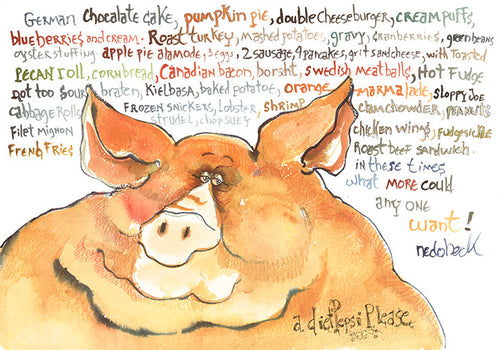 German chocalate cake, pumpkin pie, double cheeseburger, creampuffs,
blueberries and cream. Roast turkey, mashed potatoes, gravy, cranberries, greenbeans
oyster stuffing. apple pie alamode, 3 eggs, 2 sausage, 4 pancakes, grits and cheese, with Toasted
Pecan roll, cornbread, Canadian bacon, borsht, swedish meatballs, Hot Fudge
not too sour braten, Kielbasa, baked potatoe, orange marmalade, Sloppy Joe
Cabbage Rolls Frozen Snickers, Lobster, shrimp clam chowder, Peanuts
Filet Mignon strudel, chop suey chicken wings, Fudgesickle
French Fries Roast beef sandwich.
in these times
what more could
any one
want!
nedobeck
a diet Pepsi Please.